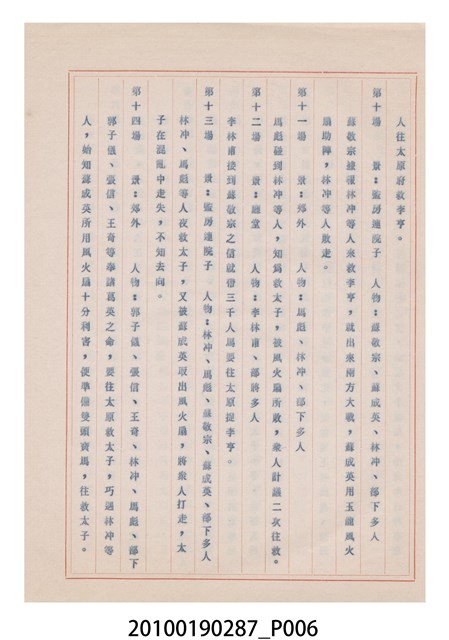 人往太原府救李亨。
第十場　景：監房連院子　人物：蘇敬宗、蘇成英、林冲、部下多人
蘇敬宗接權林冲等人來救李亨，就出來兩方大戰，蘇成英用玉龍風火
扇助陣，林冲等人敗走。
第十一場　景：郊外　人物：馬彪、林冲、部下多人
馬彪碰到林冲等人，知為救太子，被風火扇所敗，衆人計議二次往救。
第十二場　景：廳堂　人物：李林甫、部將多人
李林甫接到蘇敬宗之信就借三千人馬要往太原捉李亨。
第十三場　景：監房連院子　人物：林冲、馬彪、蘇敬宗、蘇成英、部下多人
林冲、馬彪等人夜救太子，又被蘇成英取出風火扇，將衆人打走，太
子在混亂中走失，不知去向。
第十四場　景：郊外　人物：郭子儀、張信、王奇、林冲、馬彪、部下
郭子儀、張信、王奇等奉諸葛英之命，要往太原救太子，巧遇林冲等
人，始知蘇成英所用風火扇十分利害，便準備雙頭寶馬，往救太子。
20100190287_P006